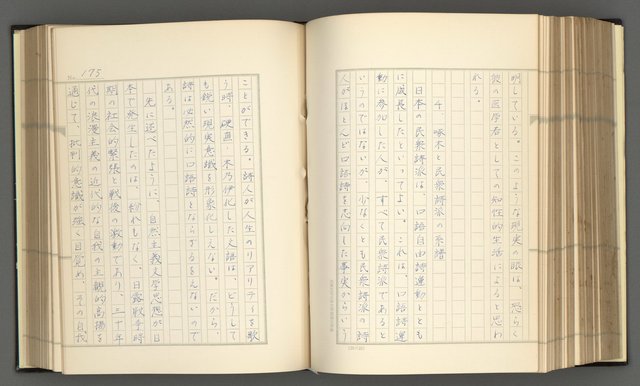 明している。このような現実の眼は、恐らく
彼の医学者としての知性的生活によると思わ
れる。
4. 啄木と民衆詩派の系譜
日本の民衆詩派は、口語自由詩運動ととも
に成長したといってよい。これは、口語詩運
動に参加した人が、すべて民衆詩派であると
いうのではないが、少なくとも民衆詩派の詩
人がほとんど口語詩を志向した事実からいう
ことができる。詩人が人生のリアリティーを歌
う時、硬直・木乃伊化した文語は、どうして
も鋭い現実意識を形象化しえない。だから、
詩は必然的に口語詩とならざるをえないので
ある。
先に述べたように、自然主義文学思想が日
本で発生したのは、紛れもなく、日露戦争時
期の社会的緊張と戦後の激動であり、三十年
代の浪漫主義の近代的な自我の主観的高揚を
通じて、批判的意識が強く目覚め、その自我
No. 175